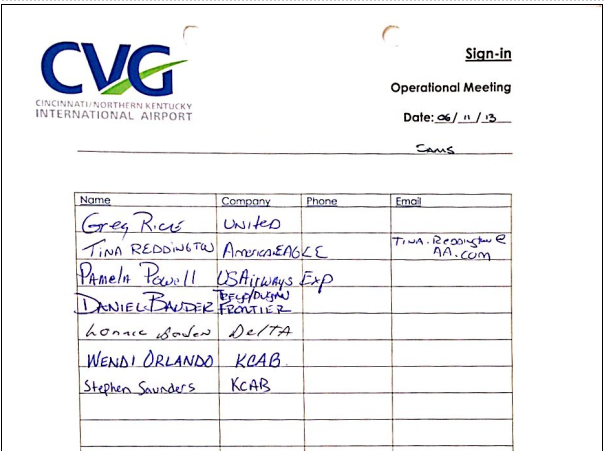 CVG
CINCINNATI/NORTHERN KENTUCKY
INTERNATIONAL AIRPORT
Sign-in
Operational Meeting
Date: 06/11/13
Name Company Phone Email
Greg Rice UNITED
TINA REDDINGTON American EAGLE TINA.Reddington@
AA.COM
PAmelA Powell USAirways Exp
DANIEL BAUDER
FRONTIER
Lonnie DelTA
WENDI ORLANDO KCAB
Stephen Saunders KCAB